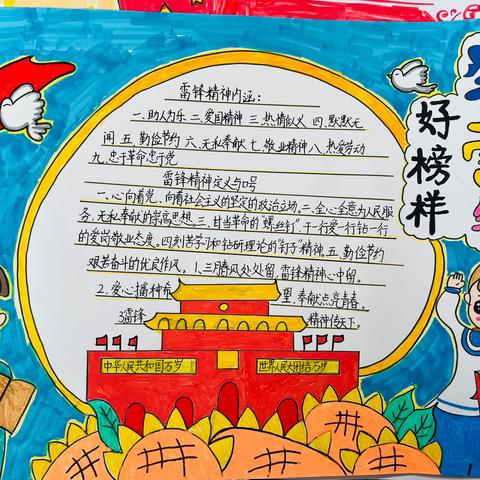 雷锋精神内涵:
一、助人为乐 二、爱国精神 三、热情似火 四、默默无
闻 五、勤俭节约 六、无私奉献 七、敬业精神 八、热爱劳动
九、忠于革命忠于党
雷锋精神定义与口号
一、心向着党、向着社会主义的坚定的政治立场。二、全心全意为人民服
务、无私奉献的崇高思想。三、甘当革命的"螺丝钉"干一行爱一行钻一行
的爱岗敬业态度。四、刻苦学习和钻研理论的"钉子"精神。五、勤俭节约
艰苦奋斗的优良作风。1、三月春风处处留,雷锋精神心中留。
2、爱心播种希望,奉献点亮青春。
3雷锋精神传天下。
中华人民共和国万岁
世界人民大团结万岁
好榜样